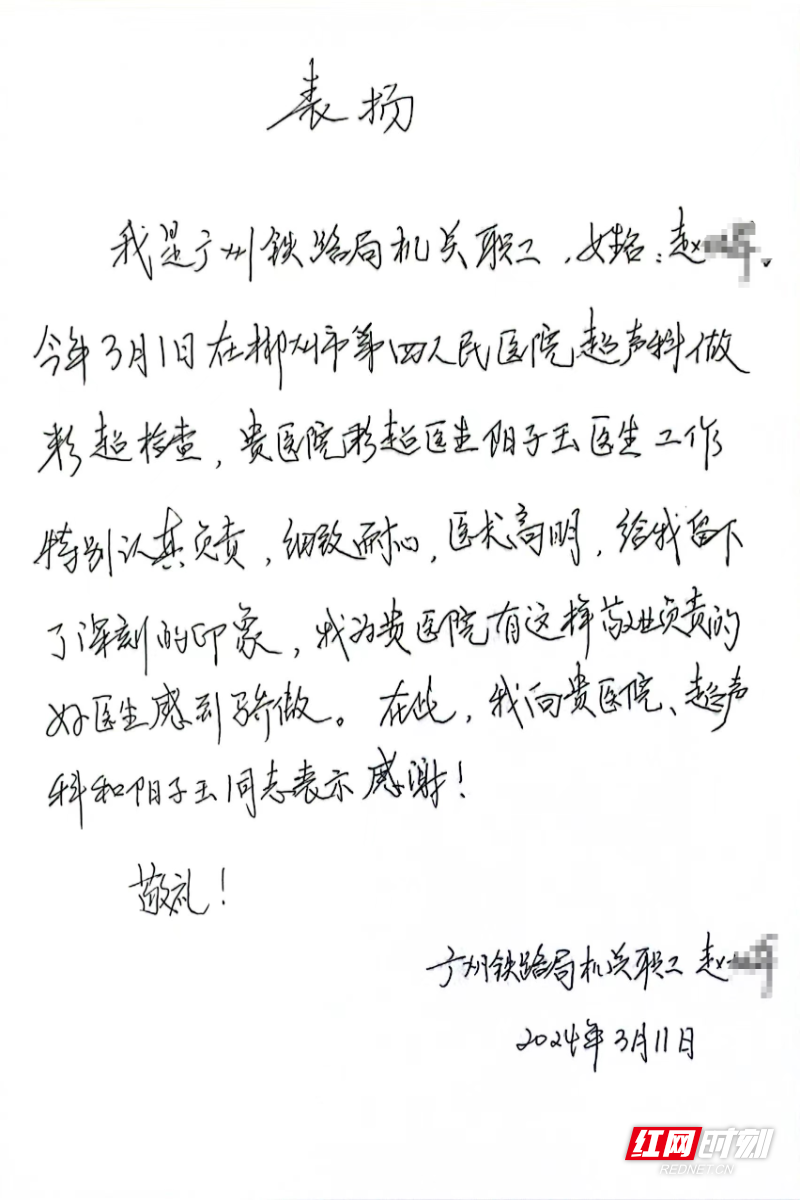 表扬
我是广州铁路局机关职工，姓名：赵
今年3月1日在郴州市第四人民医院超声科做
彩超检查，贵医院彩超医生阳子玉医生工作
特别认真负责，细致耐心，医术高明，给我留下
了深刻的印象，我为贵医院有这样敬业负责的
好医生感到骄傲。在此，我向贵医院、超声
科和阳子玉同志表示感谢！
敬礼！
广州铁路局机关职工 赵
2024年3月11日
红网时刻
REDNET.CN